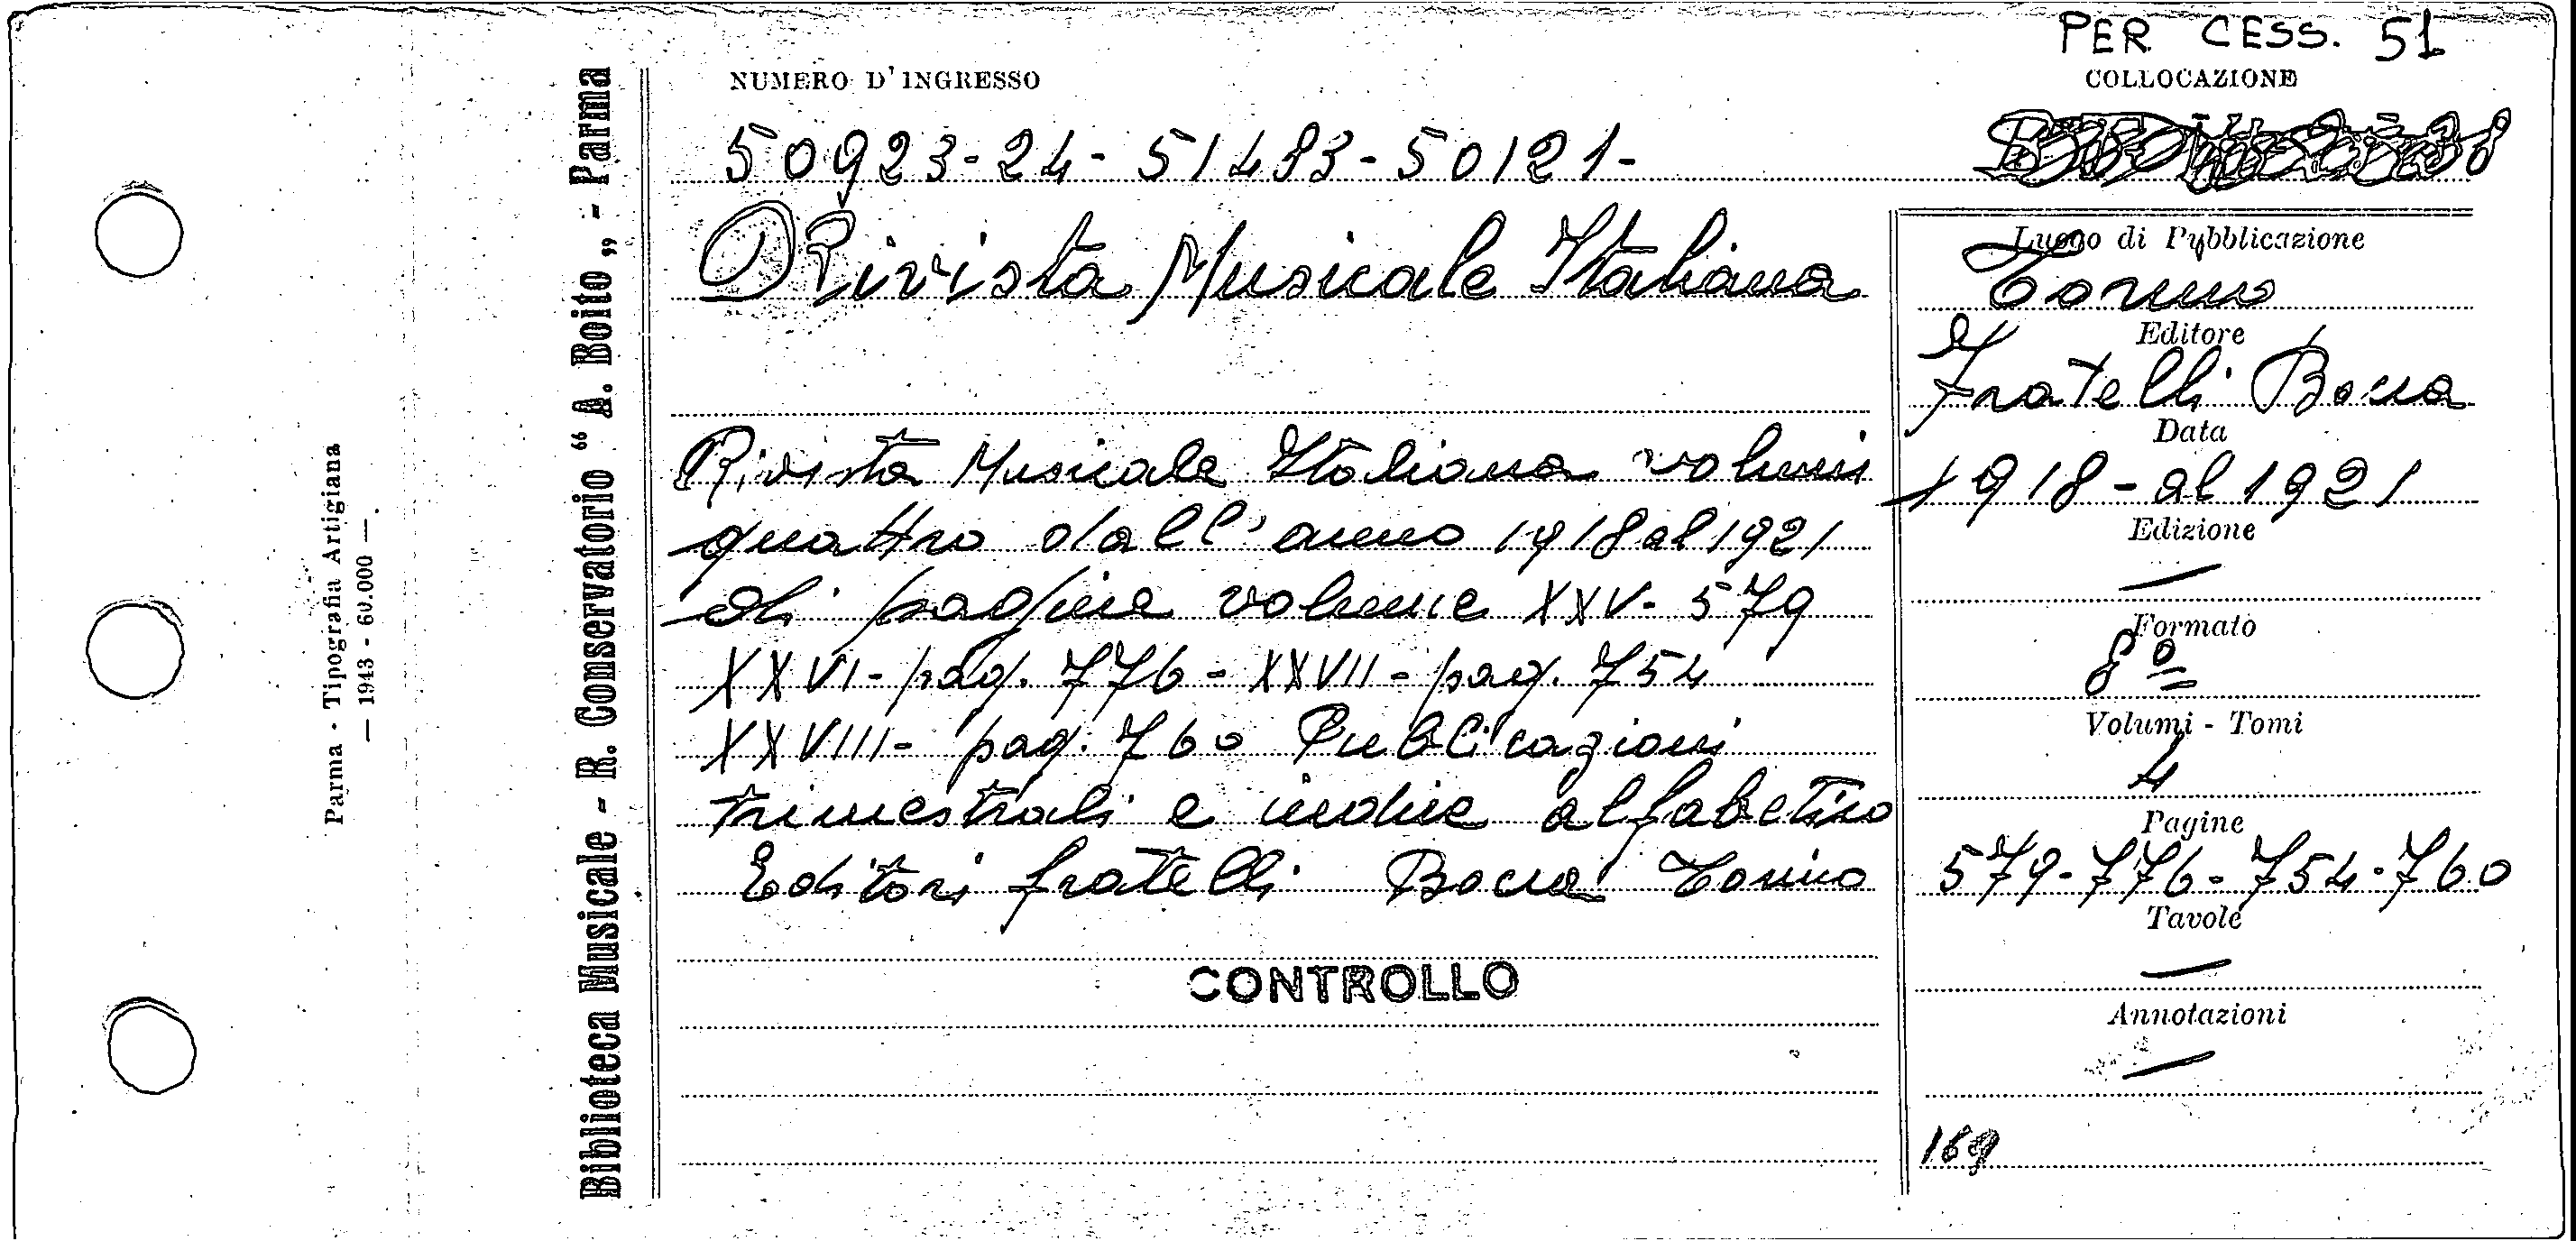 PER CESS. 51
NUMERO D'INGRESSO
COLLOCAZIONE
50923-24-51483-50121-
Rivista Musicale Italiana
Rivista Musicale Italiana volumi
quattro dall'anno 1918 al 1921
di pagine volume XXV- 579
XXVI- pag. 776 - XXVII - pag. 754
XXVIII- pag. 760 Pubblicazioni
trimestrali e indice alfabetico
Editori fratelli Bocca Torino
CONTROLLO
Luogo di Pubblicazione
Torino
Editore
Fratelli Bocca
Data
1918 - al 1921
Edizione
—
Formato
8º
Volumi - Tomi
4
Pagine
579-776-754-760
Tavole
—
Annotazioni
—
169
Biblioteca Musicale - R. Conservatorio “ A. Boito „ - Parma
Parma - Tipografia Artigiana
— 1943 - 60.000 —